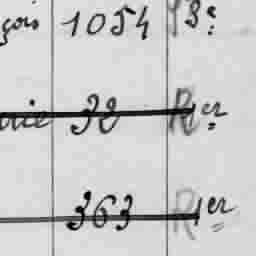 çois 1054 13e:
rie 38 R 1er
363 R 1er